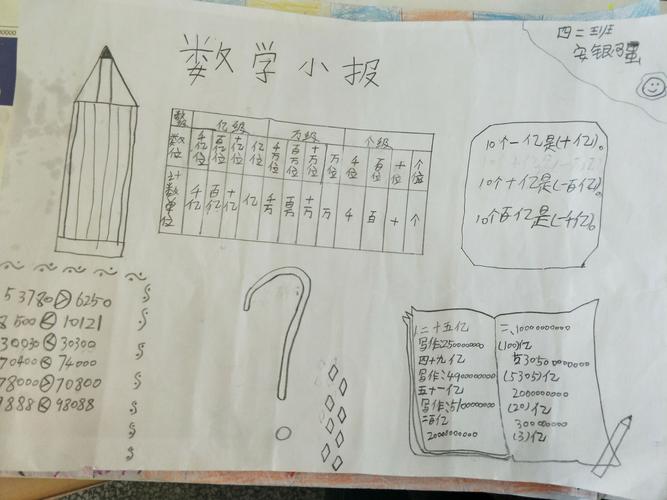 数学小报
四二班
数 亿级 万级 个级
数位 千亿位 百亿位 十亿位 亿位 千万位 百万位 十万位 万位 千位 百位 十位 个位
计数单位 千亿 百亿 十亿 亿 千万 百万 十万 万 千 百 十 个
10个一亿是(十亿)。
10个十亿是(一百亿)。
10个百亿是(一千亿)。
53780>6250
8500<10121
30030<30300
70400<74000
78000>70800
9888<98088
1.二十五亿
写作:250000000
四十九亿
写作:490000000
五十一亿
写作:510000000
二百亿
二、10000000000
(100)亿
(5305)亿
200000000
(20)亿
30000000
(3)亿